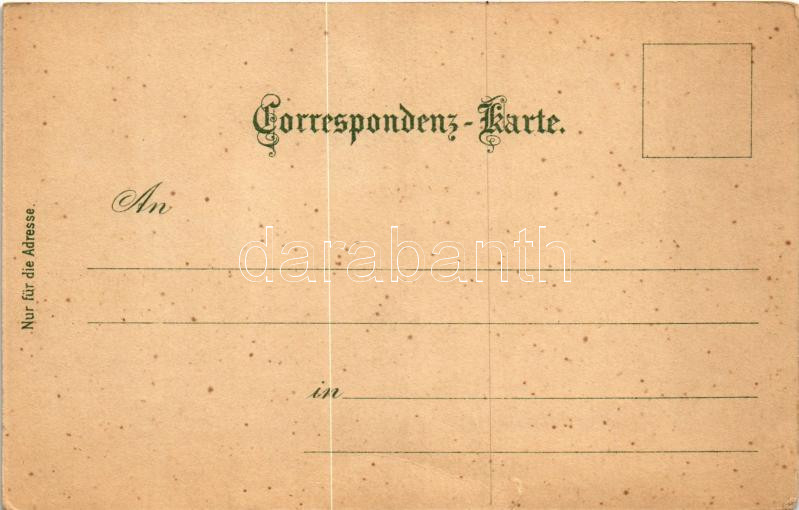 Correspondenz-Karte.
An
darabanth
in
Nur für die Adresse.